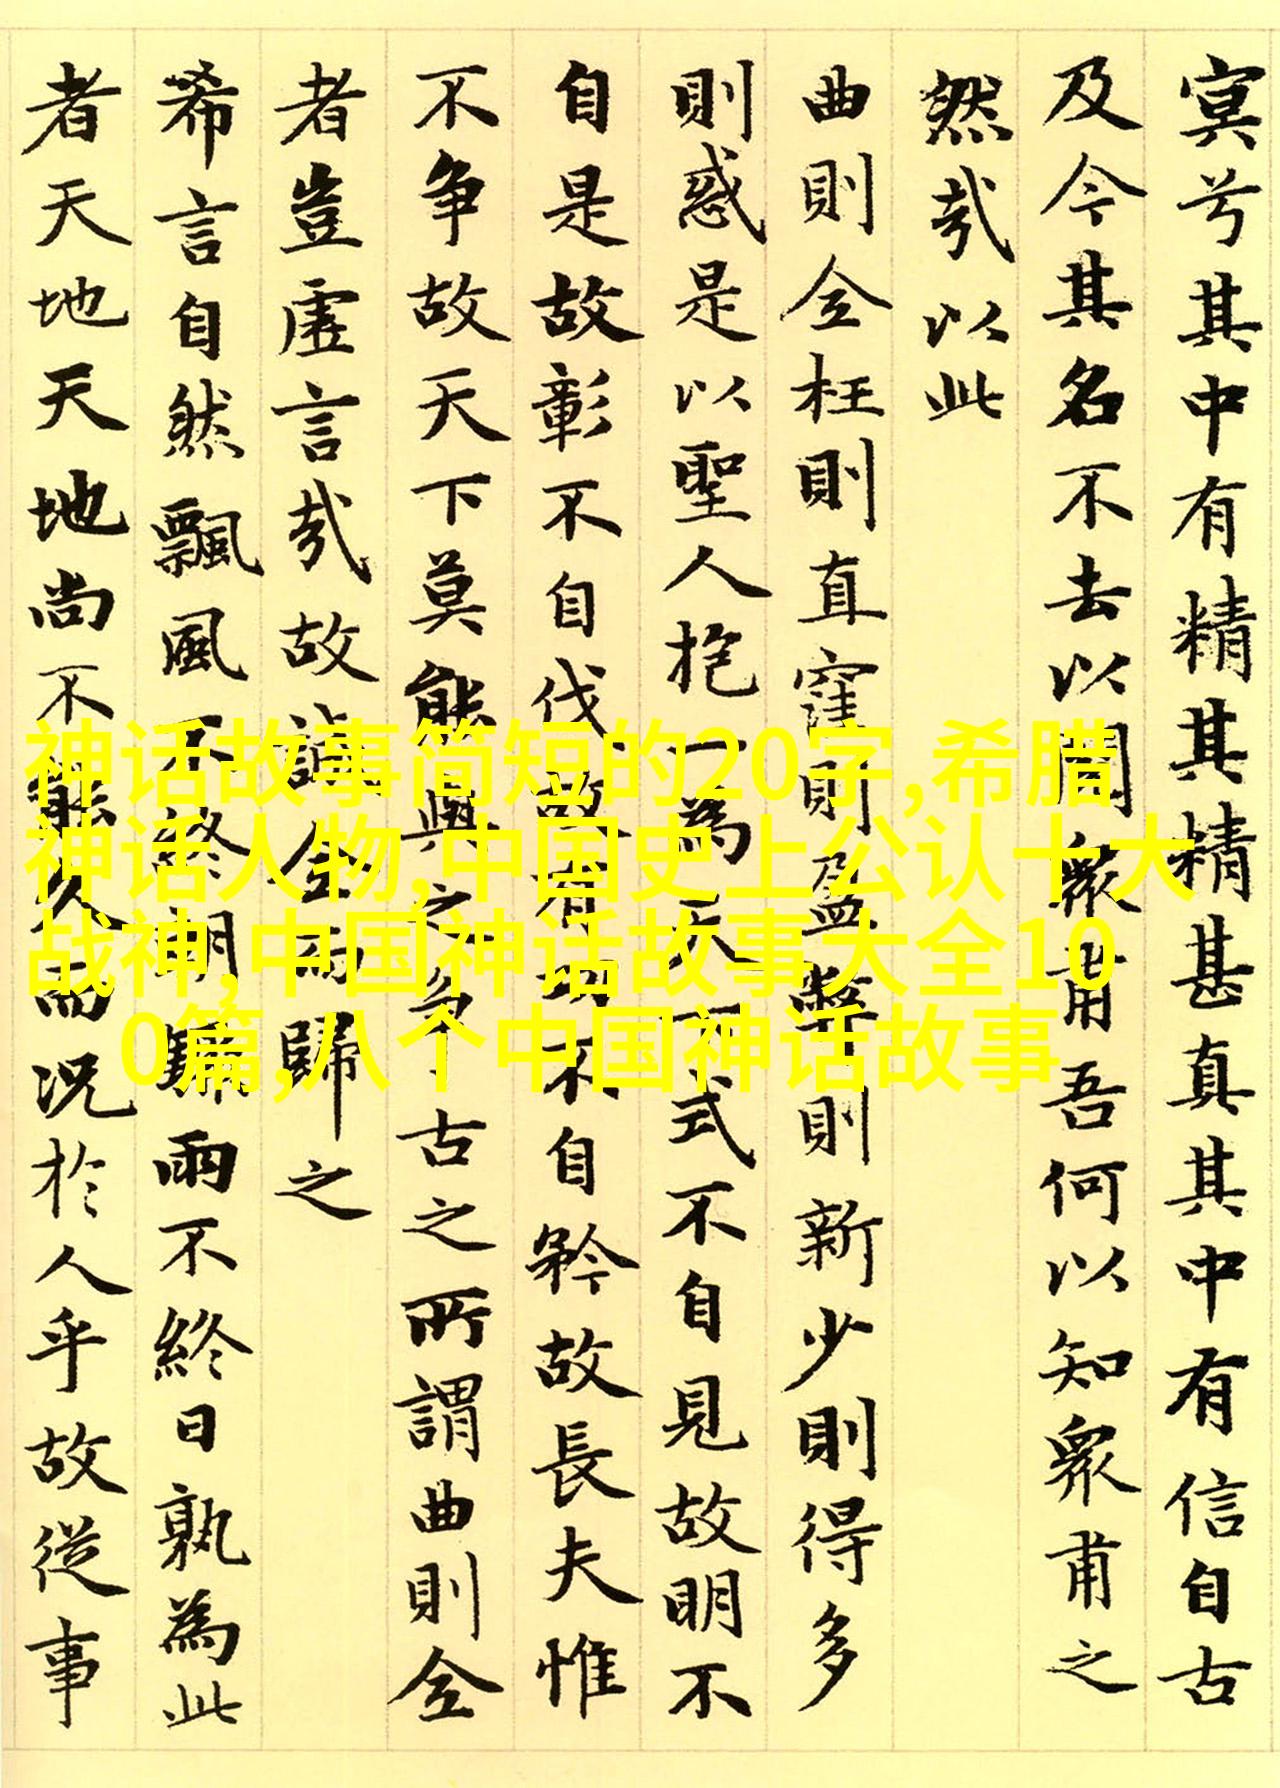 冥兮其中有精其精甚真其中有信自古
及今其名不去以閱衆甫吾何以知衆甫之
然哉以此
曲則全枉則直窪則盈弊則新少則得多
則惑是以聖人抱一為天下式不自見故明不
自是故彰不自伐故有功不自矜故長夫惟
不争故天下莫能與之争古之所謂曲則全
者豈虛言哉故誠全而歸之
希言自然飄風不終朝驟雨不終日孰為此
者天地天地尚不能久而况於人乎故從事
神话故事简短的20字,希腊
神话人物,中国史上公认十大
战神,中国神话故事大全10
0篇,八个中国神话故事